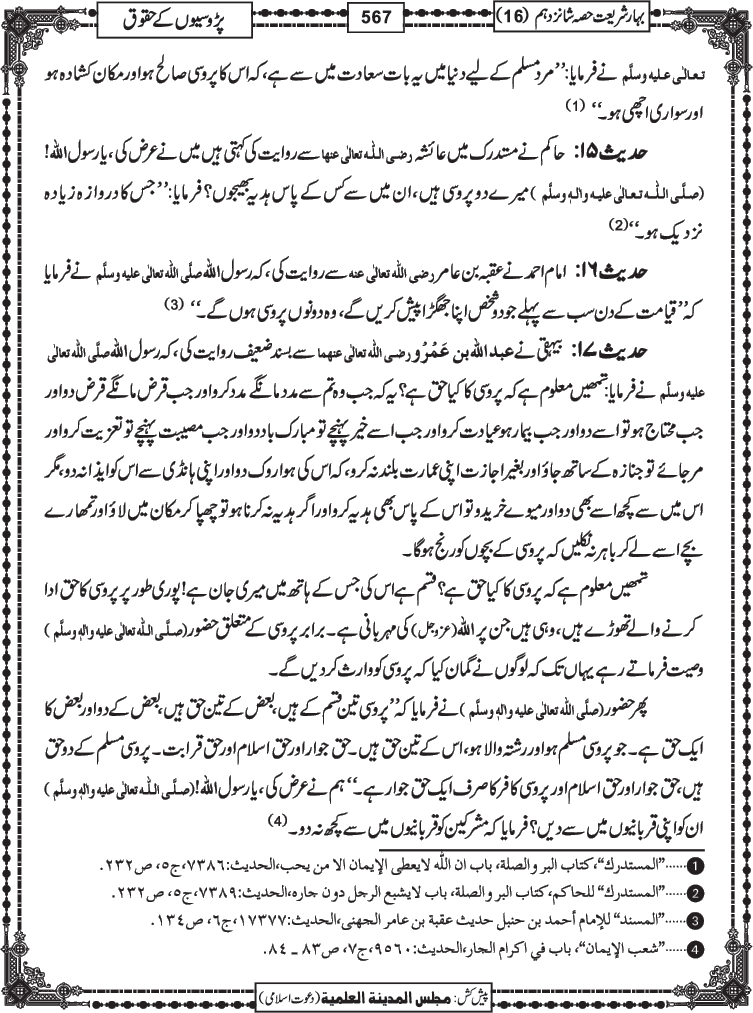 بہارِشریعت حصہ شانزدہم (16)
567
پڑوسیوں کے حقوق
تعالٰی علیہ وسلَّم نے فرمایا: ’’مرد مسلم کے لیے دنیا میں یہ بات سعادت میں سے ہے، کہ اس کا پروسی صالح ہو اور مکان کشادہ ہو
اور سواری اچھی ہو۔‘‘ (1)
حدیث ۱۵: حاکم نے مستدرک میں عائشہ رضی اللہ تعالٰی عنها سے روایت کی کہتی ہیں میں نے عرض کی، یارسول اللہ!
(صلَّی اللہ تعالٰی علیہ والہٖ وسلَّم) میرے دو پروسی ہیں، ان میں سے کس کے پاس ہدیہ بھیجوں؟ فرمایا: ’’جس کا دروازہ زیادہ
نزدیک ہو۔‘‘ (2)
حدیث ۱۶: امام احمد نے عقبہ بن عامر رضی اللہ تعالٰی عنہ سے روایت کی، کہ رسول اللہ صلَّی اللہ تعالٰی علیہ وسلَّم نے فرمایا
کہ ’’قیامت کے دن سب سے پہلے جو دو شخص اپنا جھگڑا پیش کریں گے، وہ دونوں پروسی ہوں گے۔‘‘ (3)
حدیث ۱۷: بیہقی نے عبداللہ بن عَمْرْو رضی اللہ تعالٰی عنهما سے بسند ضعیف روایت کی، کہ رسول اللہ صلَّی اللہ تعالٰی
علیہ وسلَّم نے فرمایا: تمھیں معلوم ہے کہ پروسی کا کیا حق ہے؟ یہ کہ جب وہ تم سے مدد مانگے مدد کرو اور جب قرض مانگے قرض دو اور
جب محتاج ہو تو اسے دو اور جب بیمار ہو عیادت کرو اور جب اسے خیر پہنچے تو مبارک باد دو اور جب مصیبت پہنچے تو تعزیت کرو اور
مر جائے تو جنازہ کے ساتھ جاؤ اور بغیر اجازت اپنی عمارت بلند نہ کرو، کہ اس کی ہوا روک دو اور اپنی ہانڈی سے اس کو ایذا نہ دو، مگر
اس میں سے کچھ اسے بھی دو اور میوے خریدو تو اس کے پاس بھی ہدیہ کرو اور اگر ہدیہ نہ کرنا ہو تو چھپا کر مکان میں لاؤ اور تمھارے
بچے اسے لے کر باہر نہ نکلیں کہ پروسی کے بچوں کو رنج ہوگا۔
تمھیں معلوم ہے کہ پروسی کا کیا حق ہے؟ قسم ہے اس کی جس کے ہاتھ میں میری جان ہے! پوری طور پر پروسی کا حق ادا
کرنے والے تھوڑے ہیں، وہی ہیں جن پر اللہ (عزوجل) کی مہربانی ہے۔ برابر پروسی کے متعلق حضور (صلَّی اللہ تعالٰی علیہ والہٖ وسلَّم)
وصیت فرماتے رہے یہاں تک کہ لوگوں نے گمان کیا کہ پروسی کو وارث کردیں گے۔
پھر حضور (صلَّی اللہ تعالٰی علیہ والہٖ وسلَّم) نے فرمایا کہ ’’پروسی تین قسم کے ہیں، بعض کے تین حق ہیں، بعض کے دو اور بعض کا
ایک حق ہے۔ جو پروسی مسلم ہو اور رشتہ والا ہو، اس کے تین حق ہیں۔ حق جوار اور حق اسلام اور حق قرابت۔ پروسی مسلم کے دو حق
ہیں، حق جوار اور حق اسلام اور پروسی کافر کا صرف ایک حق جوار ہے۔‘‘ ہم نے عرض کی، یارسول اللہ! (صلَّی اللہ تعالٰی علیہ والہٖ وسلَّم)
ان کو اپنی قربانیوں میں سے دیں؟ فرمایا کہ مشرکین کو قربانیوں میں سے کچھ نہ دو۔ (4)
1 ……”المستدرك“، كتاب البر والصلة، باب ان اللّٰه لايعطى الإيمان الا من يحب، الحديث: ۷۳۸٦، ج٥، ص۲۳۲.
2 ……”المستدرك“ للحاكم، كتاب البر والصلة، باب لايشبع الرجل دون جاره، الحديث: ۷۳۸۹، ج٥، ص۲۳۲.
3 ……”المسند“ للإمام أحمد بن حنبل حديث عقبة بن عامر الجهنى، الحديث: ۱۷۳۷۷، ج٦، ص۱۳٤.
4 ……”شعب الإيمان“، باب في اكرام الجار، الحديث: ۹٥٦۰، ج۷، ص۸۳ ـ ۸٤.
پیش کش: مجلس المدینۃ العلمیۃ (دعوت اسلامی)